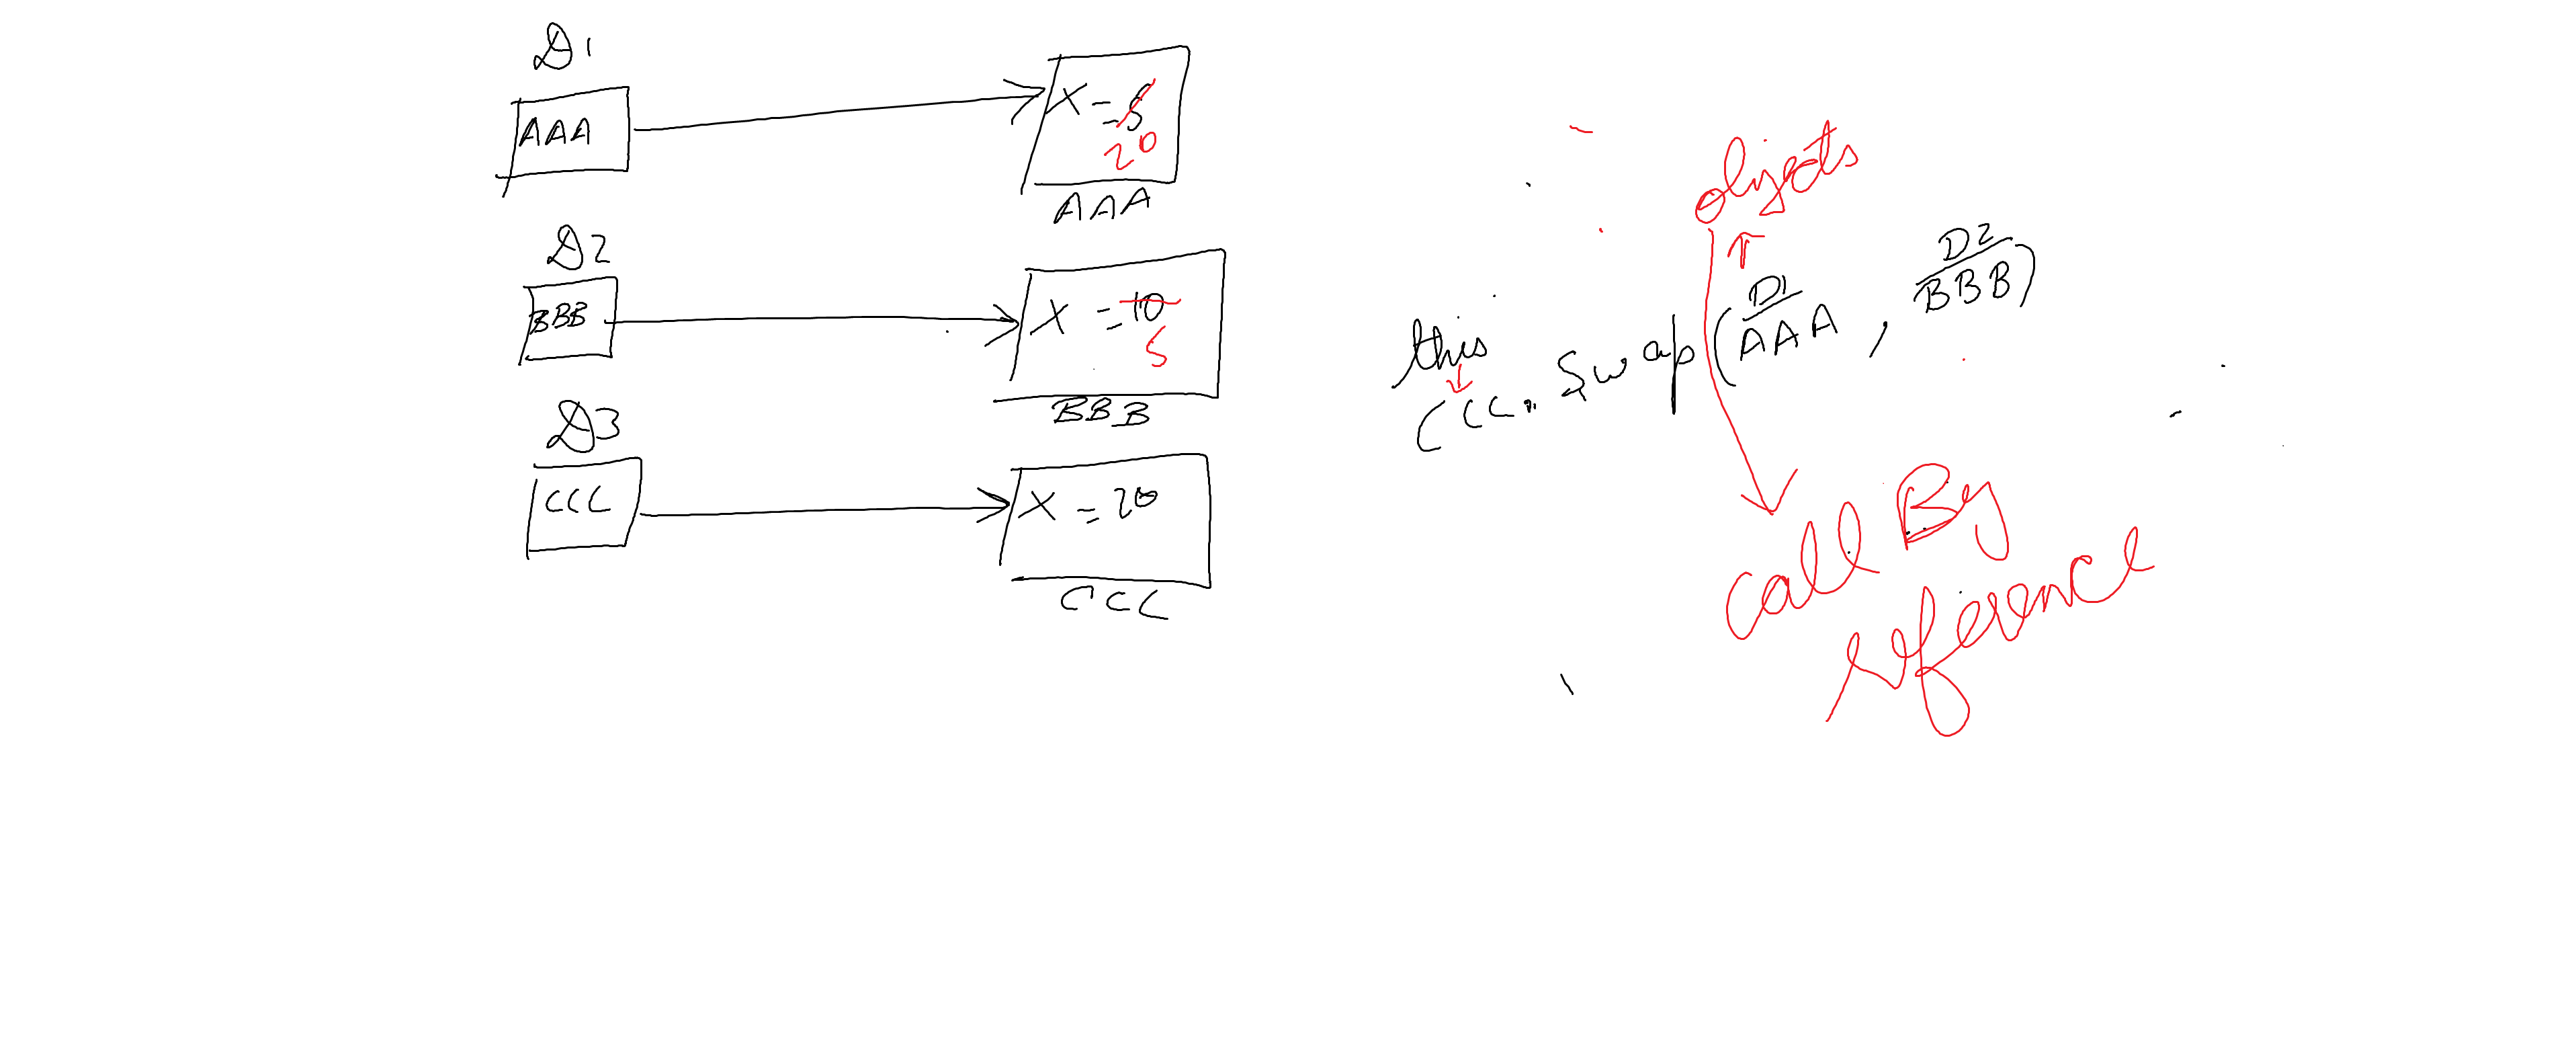 D1
AAA
X = 5
20
AAA
D2
BBB
X = 10
5
BBB
D3
CCC
X = 20
CCC
objects
this
CCC. Swap (D1 AAA, D2 BBB)
call By
reference